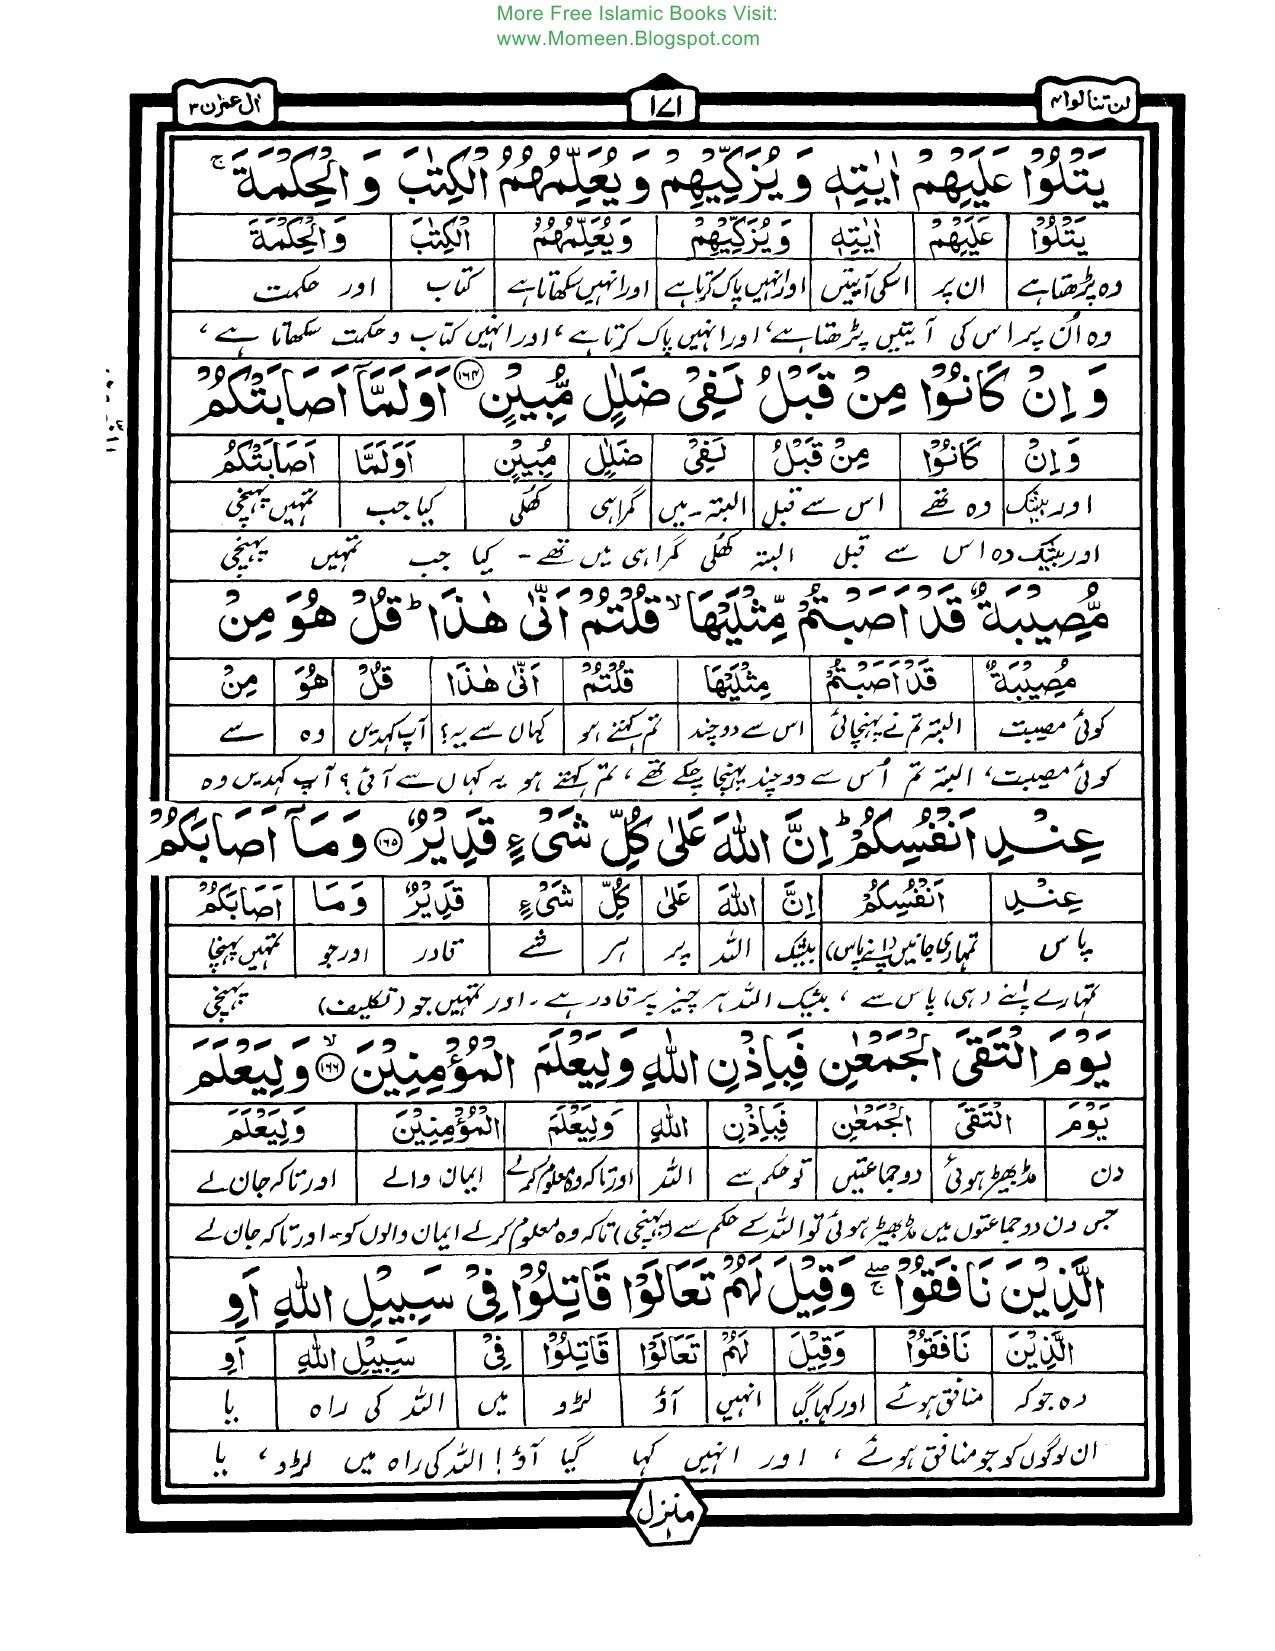 More Free Islamic Books Visit:
www.Momeen.Blogspot.com
لن تنالوا ۴ ۱۷۱ اٰل عمرٰن ۳
يَتْلُوْا عَلَيْهِمْ اٰيٰتِهٖ وَ يُزَكِّيْهِمْ وَ يُعَلِّمُهُمُ الْكِتٰبَ وَ الْحِكْمَةَ ۚ
يَتْلُوْا عَلَيْهِمْ اٰيٰتِهٖ وَيُزَكِّيْهِمْ وَيُعَلِّمُهُمُ الْكِتٰبَ وَالْحِكْمَةَ
وہ پڑھتا ہے ان پر اسکی آیتیں اور انہیں پاک کرتا ہے اور انہیں سکھاتا ہے کتاب اور حکمت
وہ اُن پر اس کی آیتیں پڑھتا ہے، اور انہیں پاک کرتا ہے، اور انہیں کتاب و حکمت سکھاتا ہے،
وَ اِنْ كَانُوْا مِنْ قَبْلُ لَفِيْ ضَلٰلٍ مُّبِيْنٍ ۱۶۴ اَوَلَمَّآ اَصَابَتْكُمْ
وَاِنْ كَانُوْا مِنْ قَبْلُ لَفِيْ ضَلٰلٍ مُبِيْنٍ اَوَلَمَّا اَصَابَتْكُمْ
اور بیشک وہ تھے اس سے قبل البتہ۔میں گمراہی کھلی کیا جب تمہیں پہنچی
اور بیشک وہ اس سے قبل البتہ کھلی گمراہی میں تھے۔ کیا جب تمہیں پہنچی
مُّصِيْبَةٌ قَدْ اَصَبْتُمْ مِّثْلَيْهَا ۙ قُلْتُمْ اَنّٰى هٰذَا ؕ قُلْ هُوَ مِنْ
مُصِيْبَةٌ قَدْ اَصَبْتُمْ مِثْلَيْهَا قُلْتُمْ اَنّٰى هٰذَا قُلْ هُوَ مِنْ
کوئی مصیبت البتہ تم نے پہنچائی اس سے دوچند تم کہتے ہو کہاں سے یہ؟ آپ کہدیں وہ سے
کوئی مصیبت، البتہ تم اُس سے دوچند پہنچا چکے تھے، تم کہتے ہو یہ کہاں سے آئی؟ آپ کہدیں وہ
عِنْدِ اَنْفُسِكُمْ ؕ اِنَّ اللّٰهَ عَلٰى كُلِّ شَيْءٍ قَدِيْرٌ ۱۶۵ وَ مَآ اَصَابَكُمْ
عِنْدِ اَنْفُسِكُمْ اِنَّ اللّٰهَ عَلٰى كُلِّ شَيْءٍ قَدِيْرٌ وَمَا اَصَابَكُمْ
پاس تمہاری جانیں (اپنے پاس) بیشک اللہ پر ہر شئے قادر اور جو تمہیں پہنچا
تمہارے اپنے (ہی) پاس سے، بیشک اللہ ہر چیز پر قادر ہے۔ اور تمہیں جو (تکلیف) پہنچی
يَوْمَ الْتَقَى الْجَمْعٰنِ فَبِاِذْنِ اللّٰهِ وَ لِيَعْلَمَ الْمُؤْمِنِيْنَ ۙ ۱۶۶ وَ لِيَعْلَمَ
يَوْمَ الْتَقَى الْجَمْعٰنِ فَبِاِذْنِ اللّٰهِ وَلِيَعْلَمَ الْمُؤْمِنِيْنَ وَلِيَعْلَمَ
دن مڈبھیڑ ہوئی دو جماعتیں تو حکم سے اللہ اور تاکہ وہ معلوم کرلے ایمان والے اور تاکہ جان لے
جس دن دو جماعتوں میں مڈبھیڑ ہوئی تو اللہ کے حکم سے (پہنچی) تاکہ وہ معلوم کرلے ایمان والوں کو۔ اور تاکہ جان لے
الَّذِيْنَ نَافَقُوْا ۖۚ وَقِيْلَ لَهُمْ تَعَالَوْا قَاتِلُوْا فِيْ سَبِيْلِ اللّٰهِ اَوِ
الَّذِيْنَ نَافَقُوْا وَقِيْلَ لَهُمْ تَعَالَوْا قَاتِلُوْا فِيْ سَبِيْلِ اللّٰهِ اَوِ
وہ جو کہ منافق ہوئے اور کہا گیا انہیں آؤ لڑو میں اللہ کی راہ یا
ان لوگوں کو جو منافق ہوئے، اور انہیں کہا گیا آؤ! اللہ کی راہ میں لڑو، یا
منزل ۱